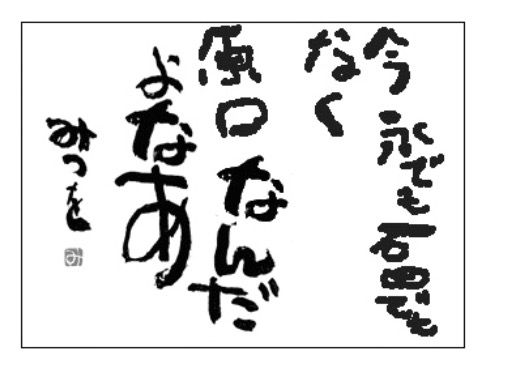 今永でも石田でも
なく
原口なんだ
よなあ
みつを
み